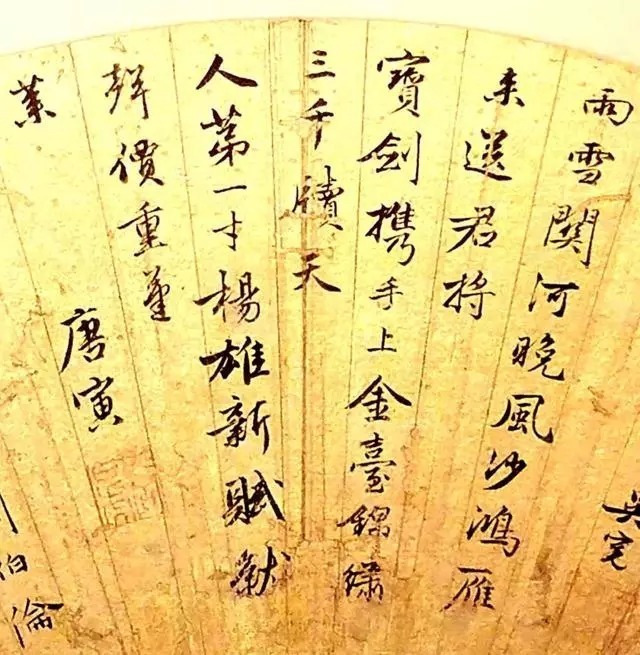 雨雪關河晚風沙鴻雁
来送君將
寶劍携手上金臺錦繡
三千牘天
人第一才楊雄新賦獻
聲價重蓬
萊
唐寅
伯倫